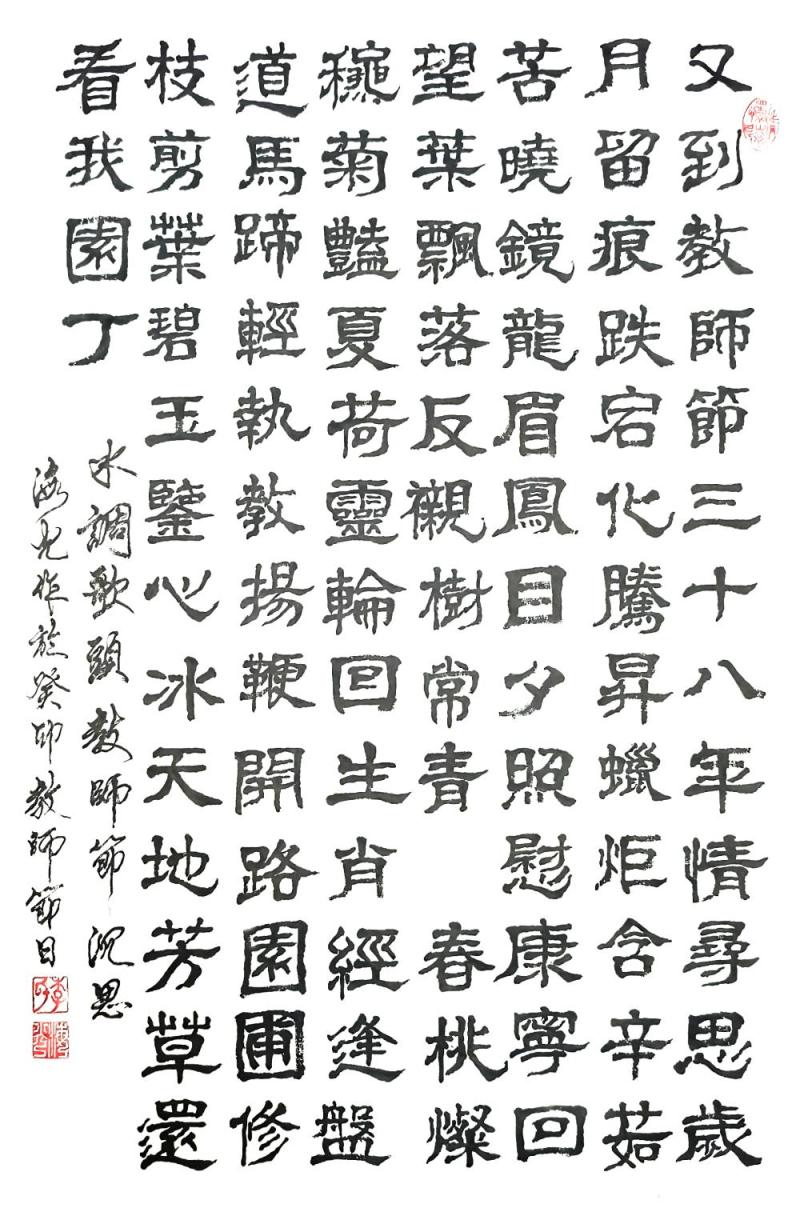 又到教師節三十八年情尋思歲
月留痕跌宕化騰昇蠟炬含辛茹
苦曉鏡龍眉鳳目夕照慰康寧回
望葉飄落反觀樹常青 春桃燦
龝菊豔夏荷靈輪回生肖經逢盤
道馬蹄輕執教揚鞭開路園圃修
枝剪葉碧玉鑒心冰天地芳草還
看我園丁
水調歌頭教師節沉思
海作於癸卯教師節日